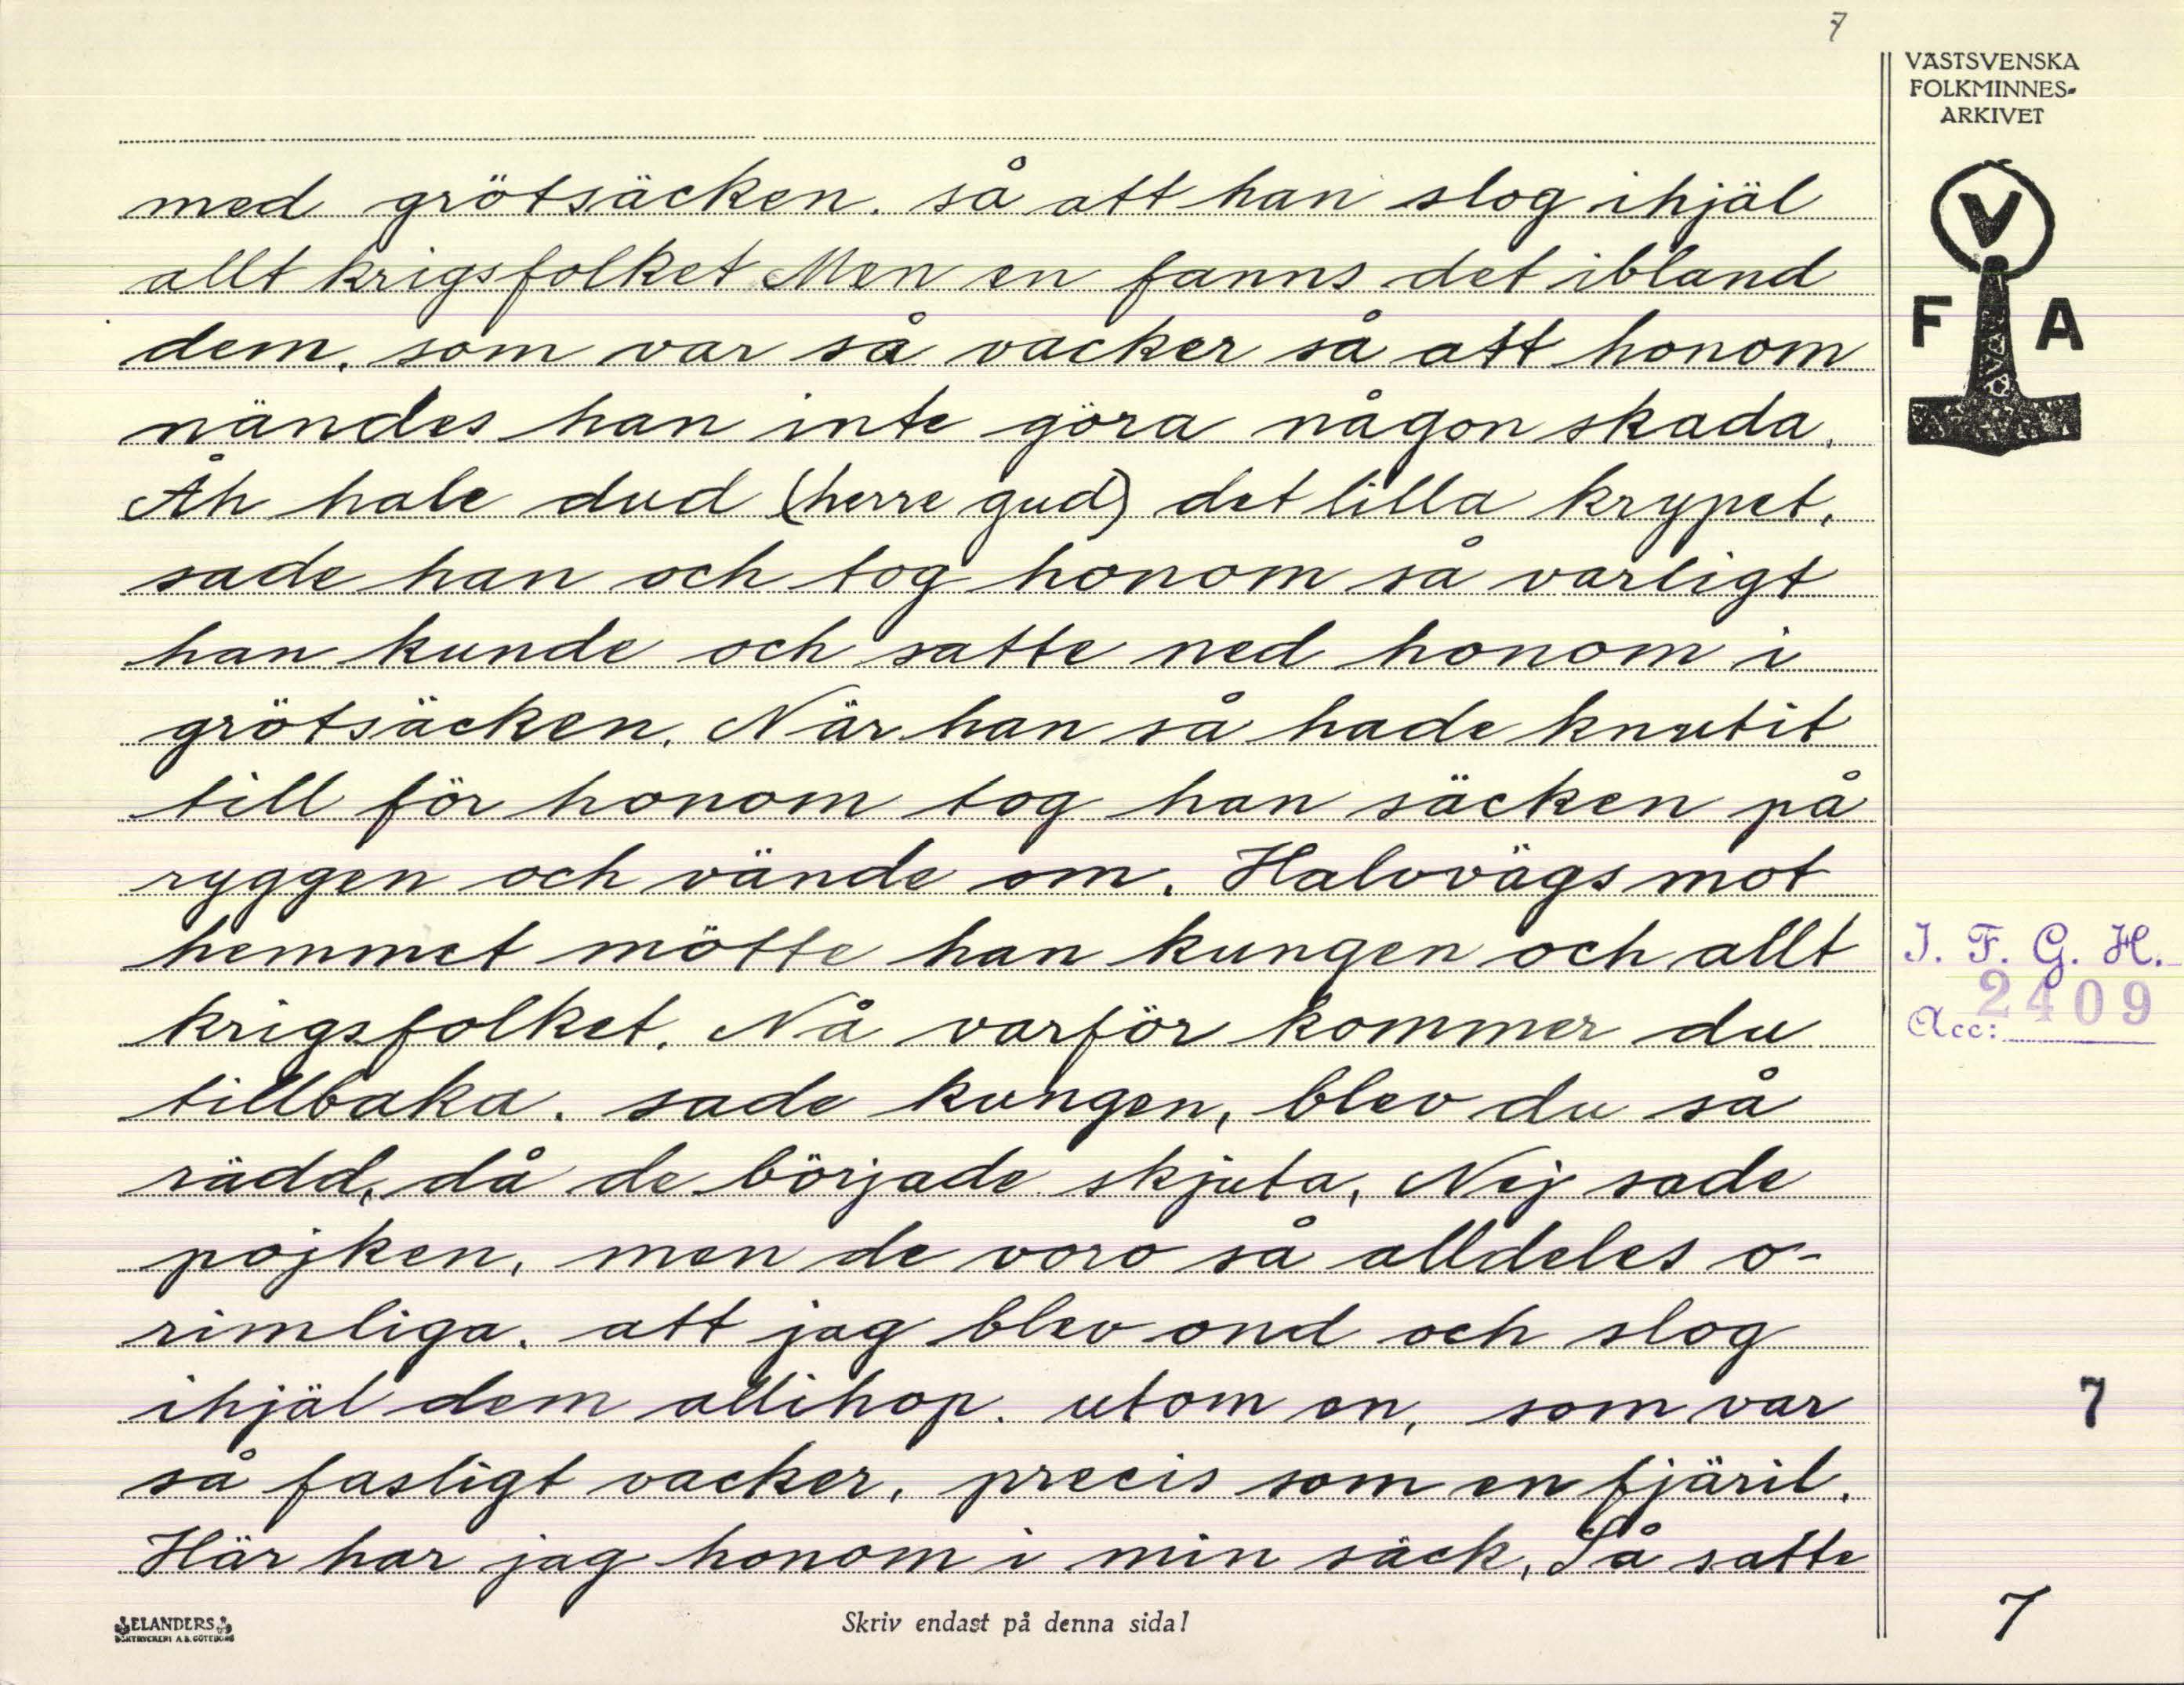 7
VÄSTSVENSKA
FOLKMINNES-
ARKIVET
V
F A
med grötsäcken. så att han slog ihjäl
allt krigsfolket Men en fanns det ibland
dem, som var så vacker så att honom
nändes han inte göra någon skada.
Åh hale dud (herre gud) det lilla krypet,
sade han och tog honom så varligt
han kunde och satte ned honom i
grötsäcken. När han så hade knutit
till för honom tog han säcken på
ryggen och vände om. Halvvägs mot
hemmet mötte han kungen och allt
krigsfolket. Nå varför kommer du
tillbaka. sade kungen, blev du så
rädd, då de började skjuta, Nej sade
pojken, men de voro så alldeles o-
rimliga. att jag blev ond och slog
ihjäl dem allihop. utom en, som var
så fasligt vacker, precis som en fjäril.
Här har jag honom i min säck, Så satte
I. F. G. H.
2409
Acc:
7
7
ELANDERS
BOKTRYCKERI A.B. GÖTEBORG
Skriv endast på denna sida!